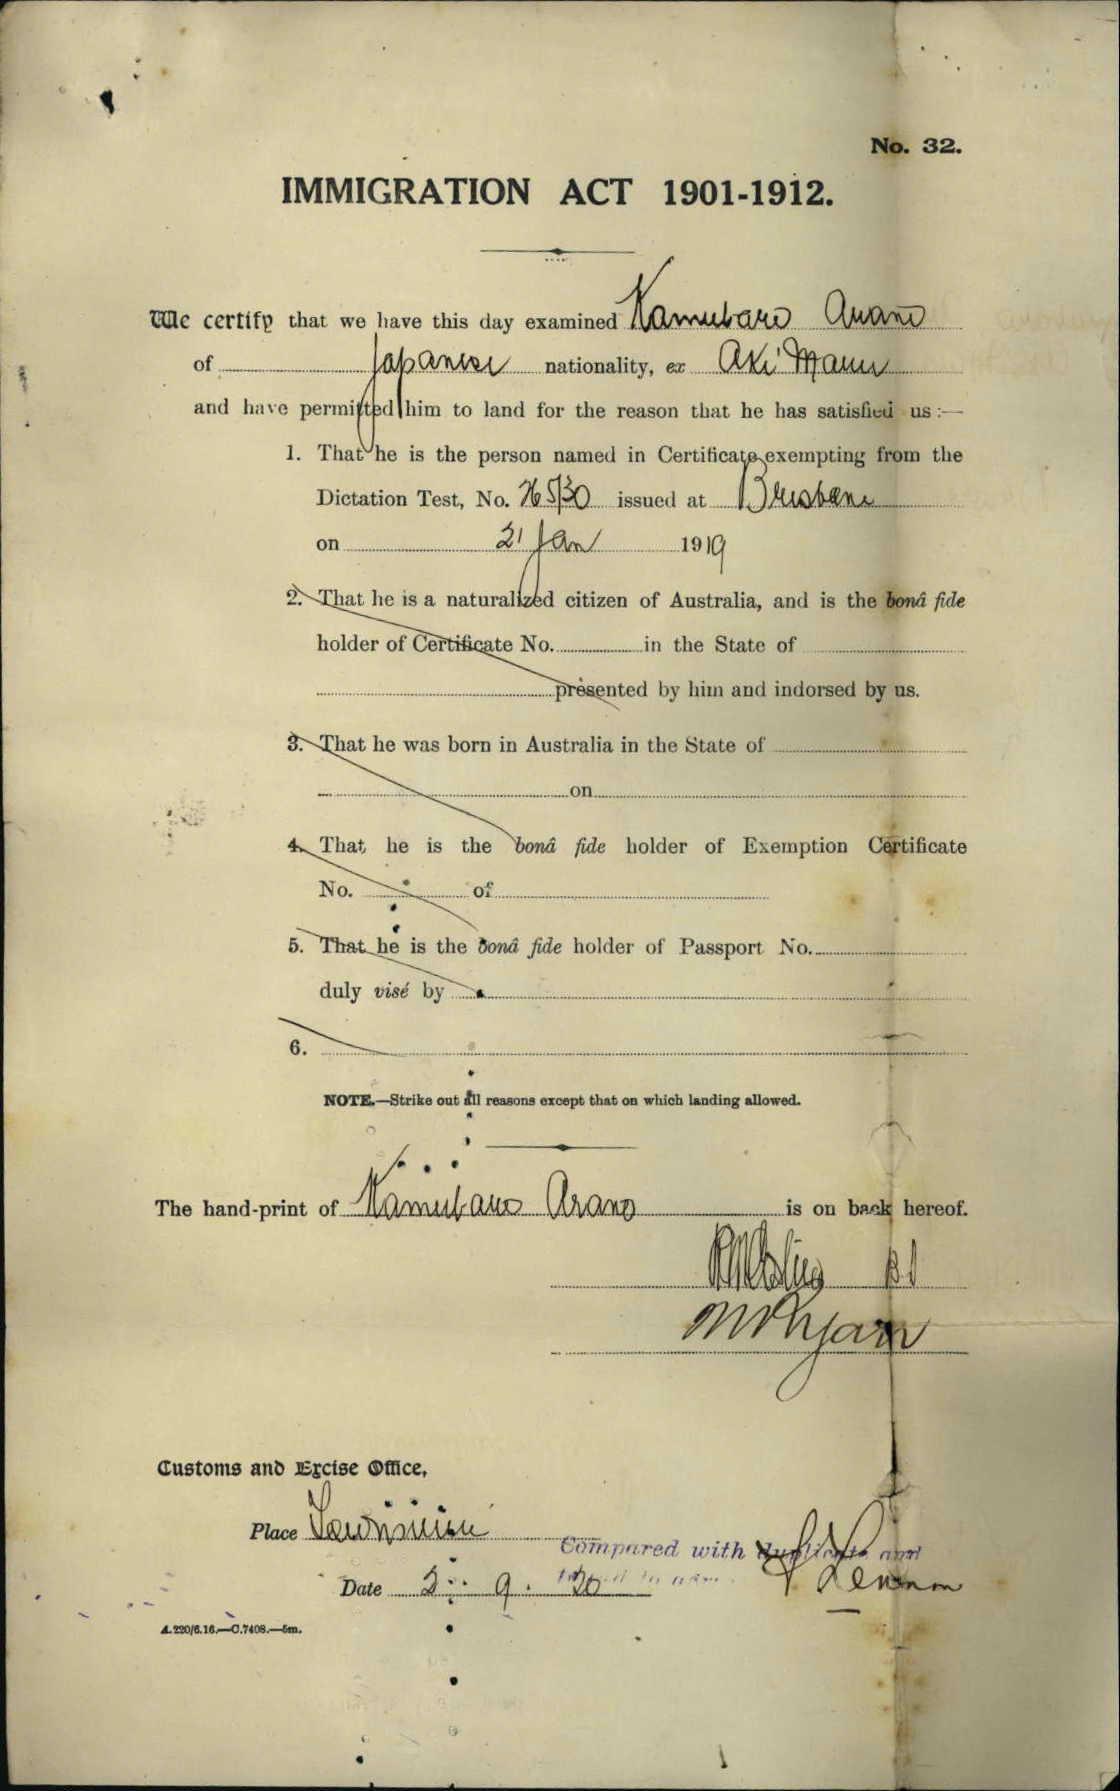 No. 32.
IMMIGRATION ACT 1901-1912.
We certify that we have this day examined Kamubaro Arano
of Japanese nationality, ex Aki Maru
and have permitted him to land for the reason that he has satisfied us :—
1. That he is the person named in Certificate exempting from the
Dictation Test, No. 265/30 issued at Brisbane
on 21 Jan 1919
2. That he is a naturalized citizen of Australia, and is the bonâ fide
holder of Certificate No. in the State of
presented by him and indorsed by us.
3. That he was born in Australia in the State of
on
4. That he is the bonâ fide holder of Exemption Certificate
No. of
5. That he is the bonâ fide holder of Passport No.
duly visé by
6.
NOTE.—Strike out all reasons except that on which landing allowed.
The hand-print of Kamubaro Arano is on back hereof.
Ryan
Customs and Excise Office,
Place
Compared with duplicate and
Date 2. 9. 20
A.220/6.16.—C.7408.—5m.